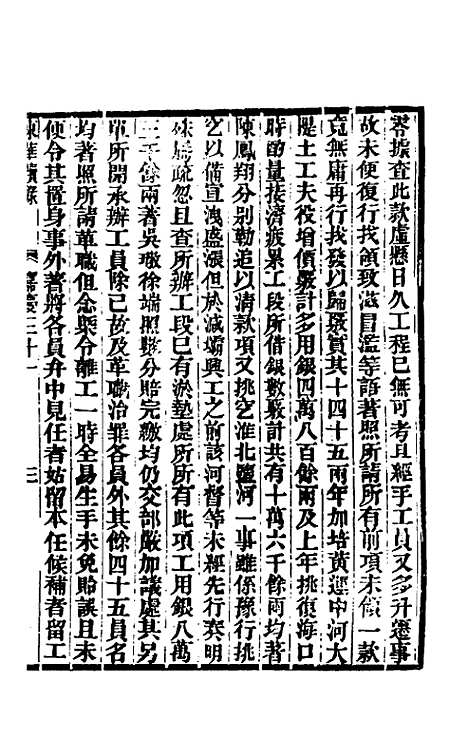 咨據查此款虛懸日久工程已無可考且經手工員又多升遷事
故未便復行找領致滋冒濫等語著照所請所有前項未領一款
竟無庸再行找發以歸覈實其十四十五兩年加培黃運中河大
隄土工夫役增價覈計多用銀四萬八百餘兩及上年挑復海口
時酌量接濟疲累工段所借銀數覈計共有十萬六千餘兩均著
陳鳳翔分別勒追以清款項又挑乞淮北鹽河一事雖係豫行挑
乞以備宣洩盛漲但於減壩興工之前該河督等未經先行奏明
殊屬疏忽且查所辦工段已有淤墊處所所有此項工用銀八萬
三千餘兩著吳璥徐端照數分賠完繳均仍交部嚴加議處其另
單所開承辦工員除已故及革職治罪各員外其餘四十五員名
均著照所請革職但念槩令離工一時全易生手未免貽誤且未
便令其置身事外著將各員弁中見任者姑留本任候補者留工
東華續錄 嘉慶三十一 三